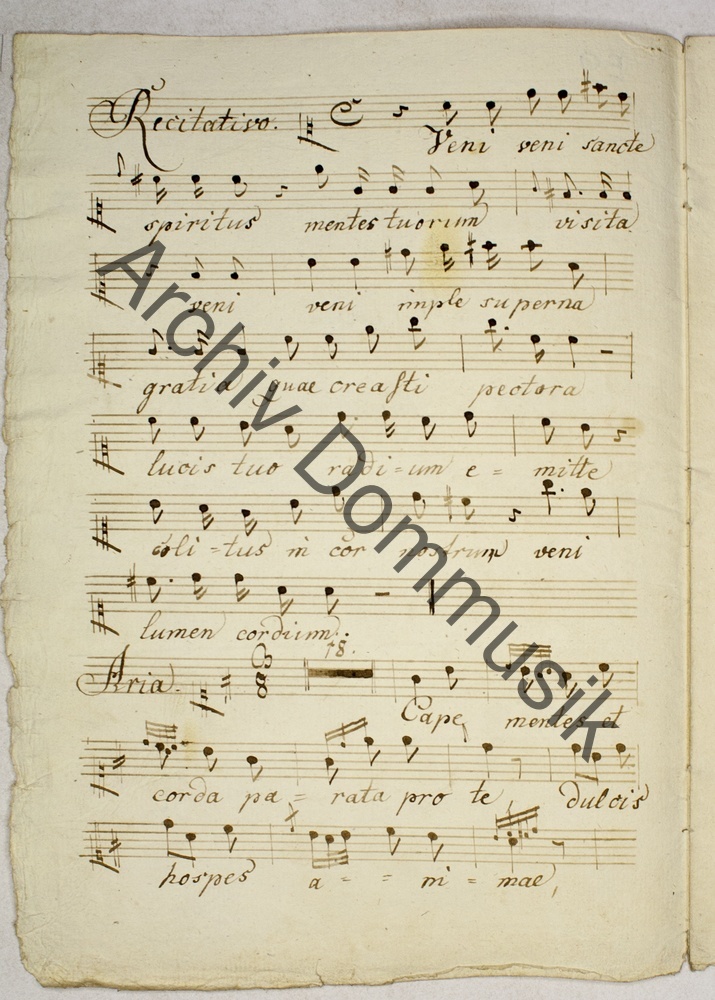 Recitativo.
Veni veni sancte
spiritus mentes tuorum visita
veni veni imple superna
gratia quae creasti pectora
lucis tuo radi=um e = mitte
coli=tus in cor nostrum veni
lumen cordium:
78.
Aria.
Cape mentes et
corda pa = rata pro te dulcis
hospes a = = ni = mae,
Archiv Dommusik